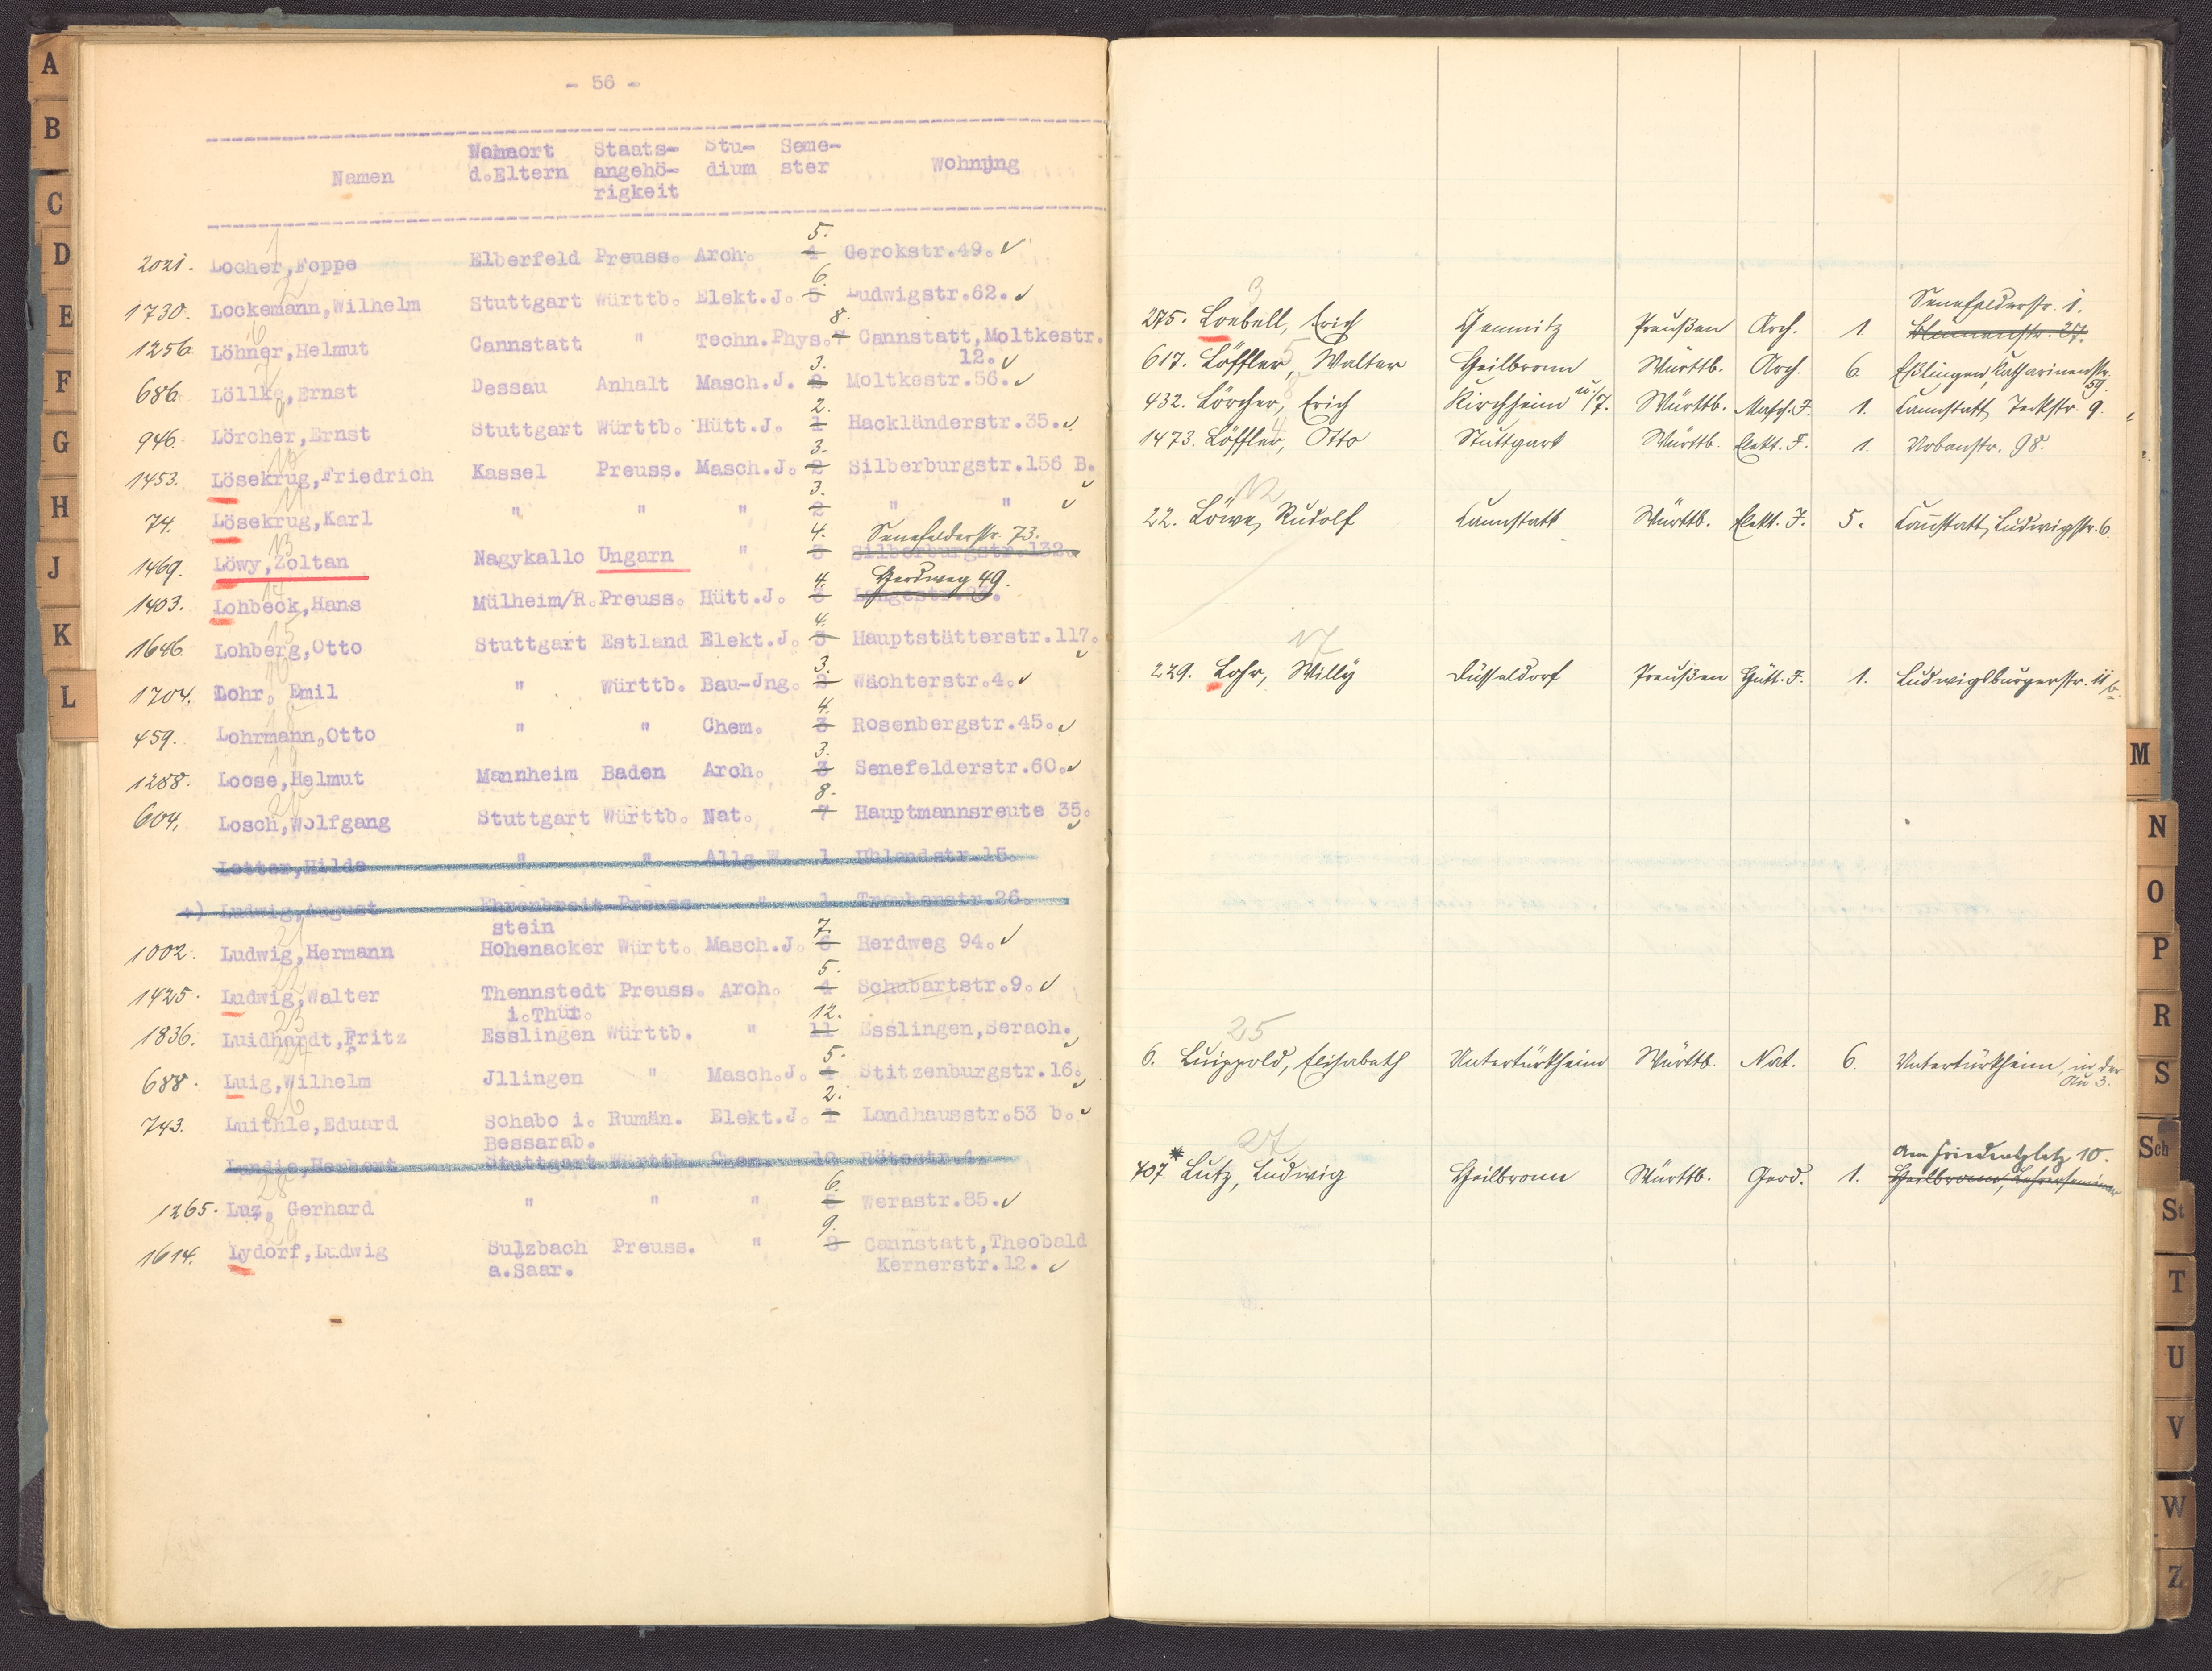 - 56 -
Namen Wohnort d.Eltern Staatsangehö-rigkeit Stu-dium Seme-ster Wohnung
2021. Locher,Foppe Elberfeld Preuss. Arch. 4 5. Gerokstr.49.
1730. Lockemann,Wilhelm Stuttgart Württb. Elekt.J. 5 6. Ludwigstr.62.
1256. Löhner,Helmut Cannstatt " Techn.Phys. 7 8. Cannstatt,Moltkestr.
12.
686. Löllke,Ernst Dessau Anhalt Masch.J. 2 3. Moltkestr.56.
946. Lörcher,Ernst Stuttgart Württb. Hütt.J. 1 2. Hackländerstr.35.
1453. Lösekrug,Friedrich Kassel Preuss. Masch.J. 2 3. Silberburgstr.156 B.
74. Lösekrug,Karl " " " 2 3. " "
Senefelderstr. 73.
1469. Löwy,Zoltan Nagykallo Ungarn " 3 4. Silberburgstr.132.
Herdweg 49.
1403. Lohbeck,Hans Mülheim/R. Preuss. Hütt.J. 3 4.
1646. Lohberg,Otto Stuttgart Estland Elekt.J. 3 4. Hauptstätterstr.117.
1704. Lohr, Emil " Württb. Bau-Jng. 2 3. Wächterstr.4.
459. Lohrmann,Otto " " Chem. 3 4. Rosenbergstr.45.
1288. Loose,Helmut Mannheim Baden Arch. 3 3. Senefelderstr.60.
604. Losch,Wolfgang Stuttgart Württb. Nat. 7 8. Hauptmannsreute 35.
Lotter,Hilde " " Allg.W. 1 Uhlandstr.15.
+) Ludwig,August Ehrenbreit Preuss. " 1 26.
stein
1002. Ludwig,Hermann Hohenacker Württ. Masch.J. 6 7. Herdweg 94.
1425. Ludwig,Walter Thennstedt Preuss. Arch. 4 5. Schubartstr.9.
i.Thür.
1836. Luidhardt,Fritz Esslingen Württb. " 11 12. Esslingen,Serach.
688. Luig,Wilhelm Jllingen " Masch.J. 4 5. Stitzenburgstr.16.
743. Luithle,Eduard Schabo i. Rumän. Elekt.J. 1 2. Landhausstr.53 b.
Bessarab.
Herbert Stuttgart Württb. Chem. 10 Rötestr.4.
1265. Luz, Gerhard " " " 5 6. Werastr.85.
1614. Lydorf,Ludwig Sulzbach Preuss. " 8 9. Cannstatt,Theobald
a.Saar. Kernerstr.12.
Senefelderstr. 1.
275. Loebell, Erich Chemnitz Preußen Arch. 1 Blumenstr. 27.
617. Löffler, Walter Heilbronn Württb. Arch. 6 Eßlingen, Katharinenstr. 59.
432. Lörcher, Erich Kirchheim u/T. Württb. Masch.J. 1. Cannstatt, Teckstr. 9.
1473. Löffler, Otto Stuttgart Württb. Elekt.J. 1. Urbanstr. 98.
22. Löwe, Rudolf Cannstatt Württb. Elekt.J. 5. Cannstatt, Ludwigstr. 6.
229. Lohr, Willy Düsseldorf Preußen Hütt.J. 1. Ludwigsburgerstr. 11 b.
6. Luippold, Elisabeth Untertürkheim Württb. Nat. 6. Untertürkheim, in der
Au 3.
Am Friedensplatz 10.
407. * Lutz, Ludwig Heilbronn Württb. Geod. 1. Heilbronn, Lehrerseminar
A
B
C
D
E
F
G
H
J
K
L
M
N
O
P
R
S
Sch
St
T
U
V
W
Z